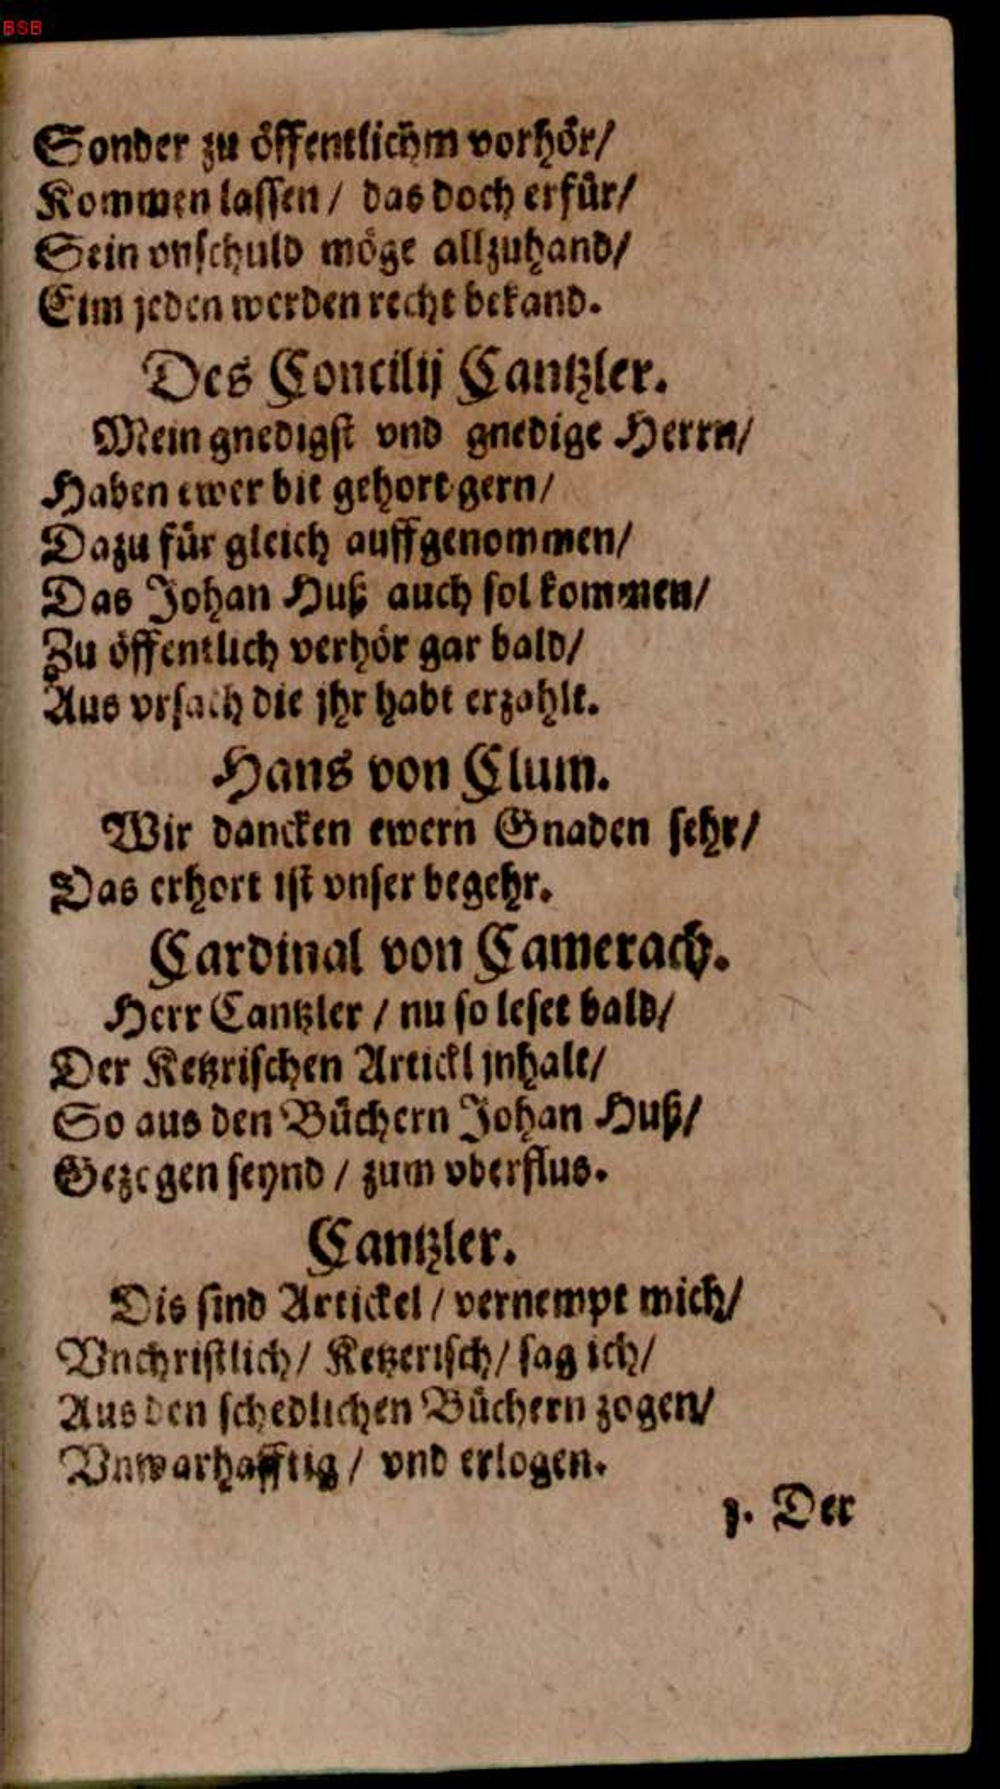 BSB
Sonder zu öffentlichm vorhör/
Kommen lassen / das doch erfür/
Sein vnschuld möge allzuhand/
Eim jeden werden recht bekand.
Des Concilij Cantzler.
Mein gnedigst vnd gnedige Herrn/
Haben ewer bit gehort gern/
Dazu für gleich auffgenommen/
Das Johan Huß auch sol kommen/
Zu öffentlich verhör gar bald/
Aus vrsach die jhr habt erzahlt.
Hans von Clum.
Wir dancken ewern Gnaden sehr/
Das erhort ist vnser begehr.
Cardinal von Camerach.
Herr Cantzler / nu so leset bald/
Der Ketzrischen Artickl jnhalt/
So aus den Büchern Johan Huß/
Gezogen seynd / zum vberflus.
Cantzler.
Dis sind Artickel / vernempt mich/
Vnchristlich / Ketzerisch / sag ich/
Aus den schedlichen Büchern zogen/
Vnwarhafftig / vnd erlogen.
Der